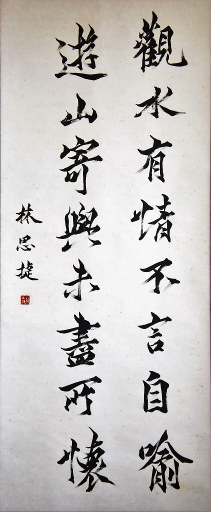 觀水有情不言自喻
遊山寄興未盡所懷
林思捷